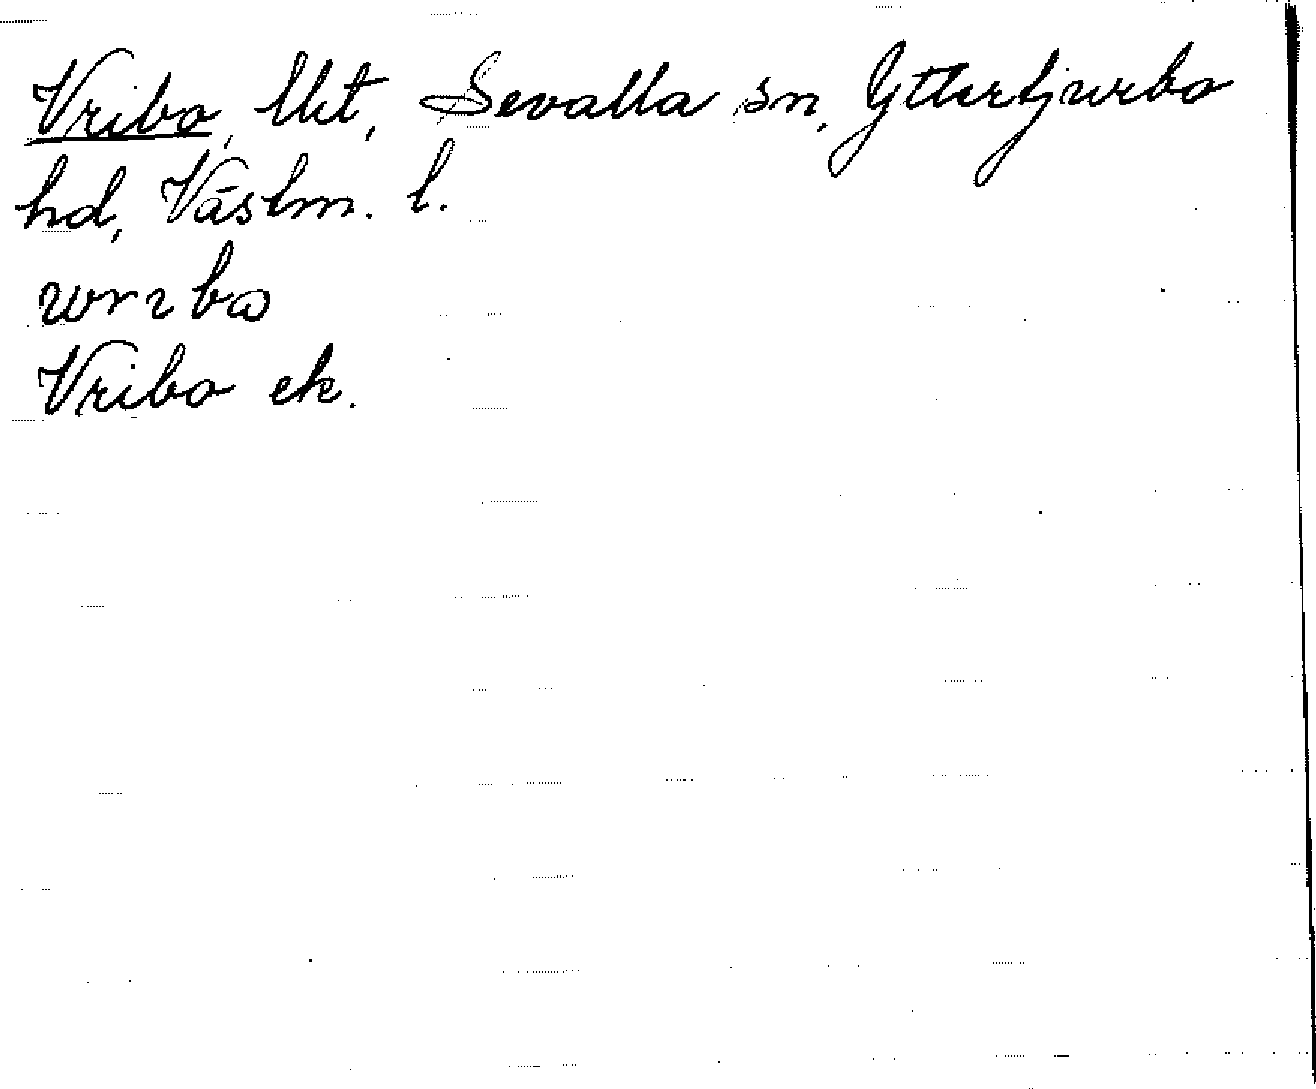 Vribo, lht, Sevalla sn, Yttertjurbo
hd, Västm. l.
wrıbω
Vribo ek.